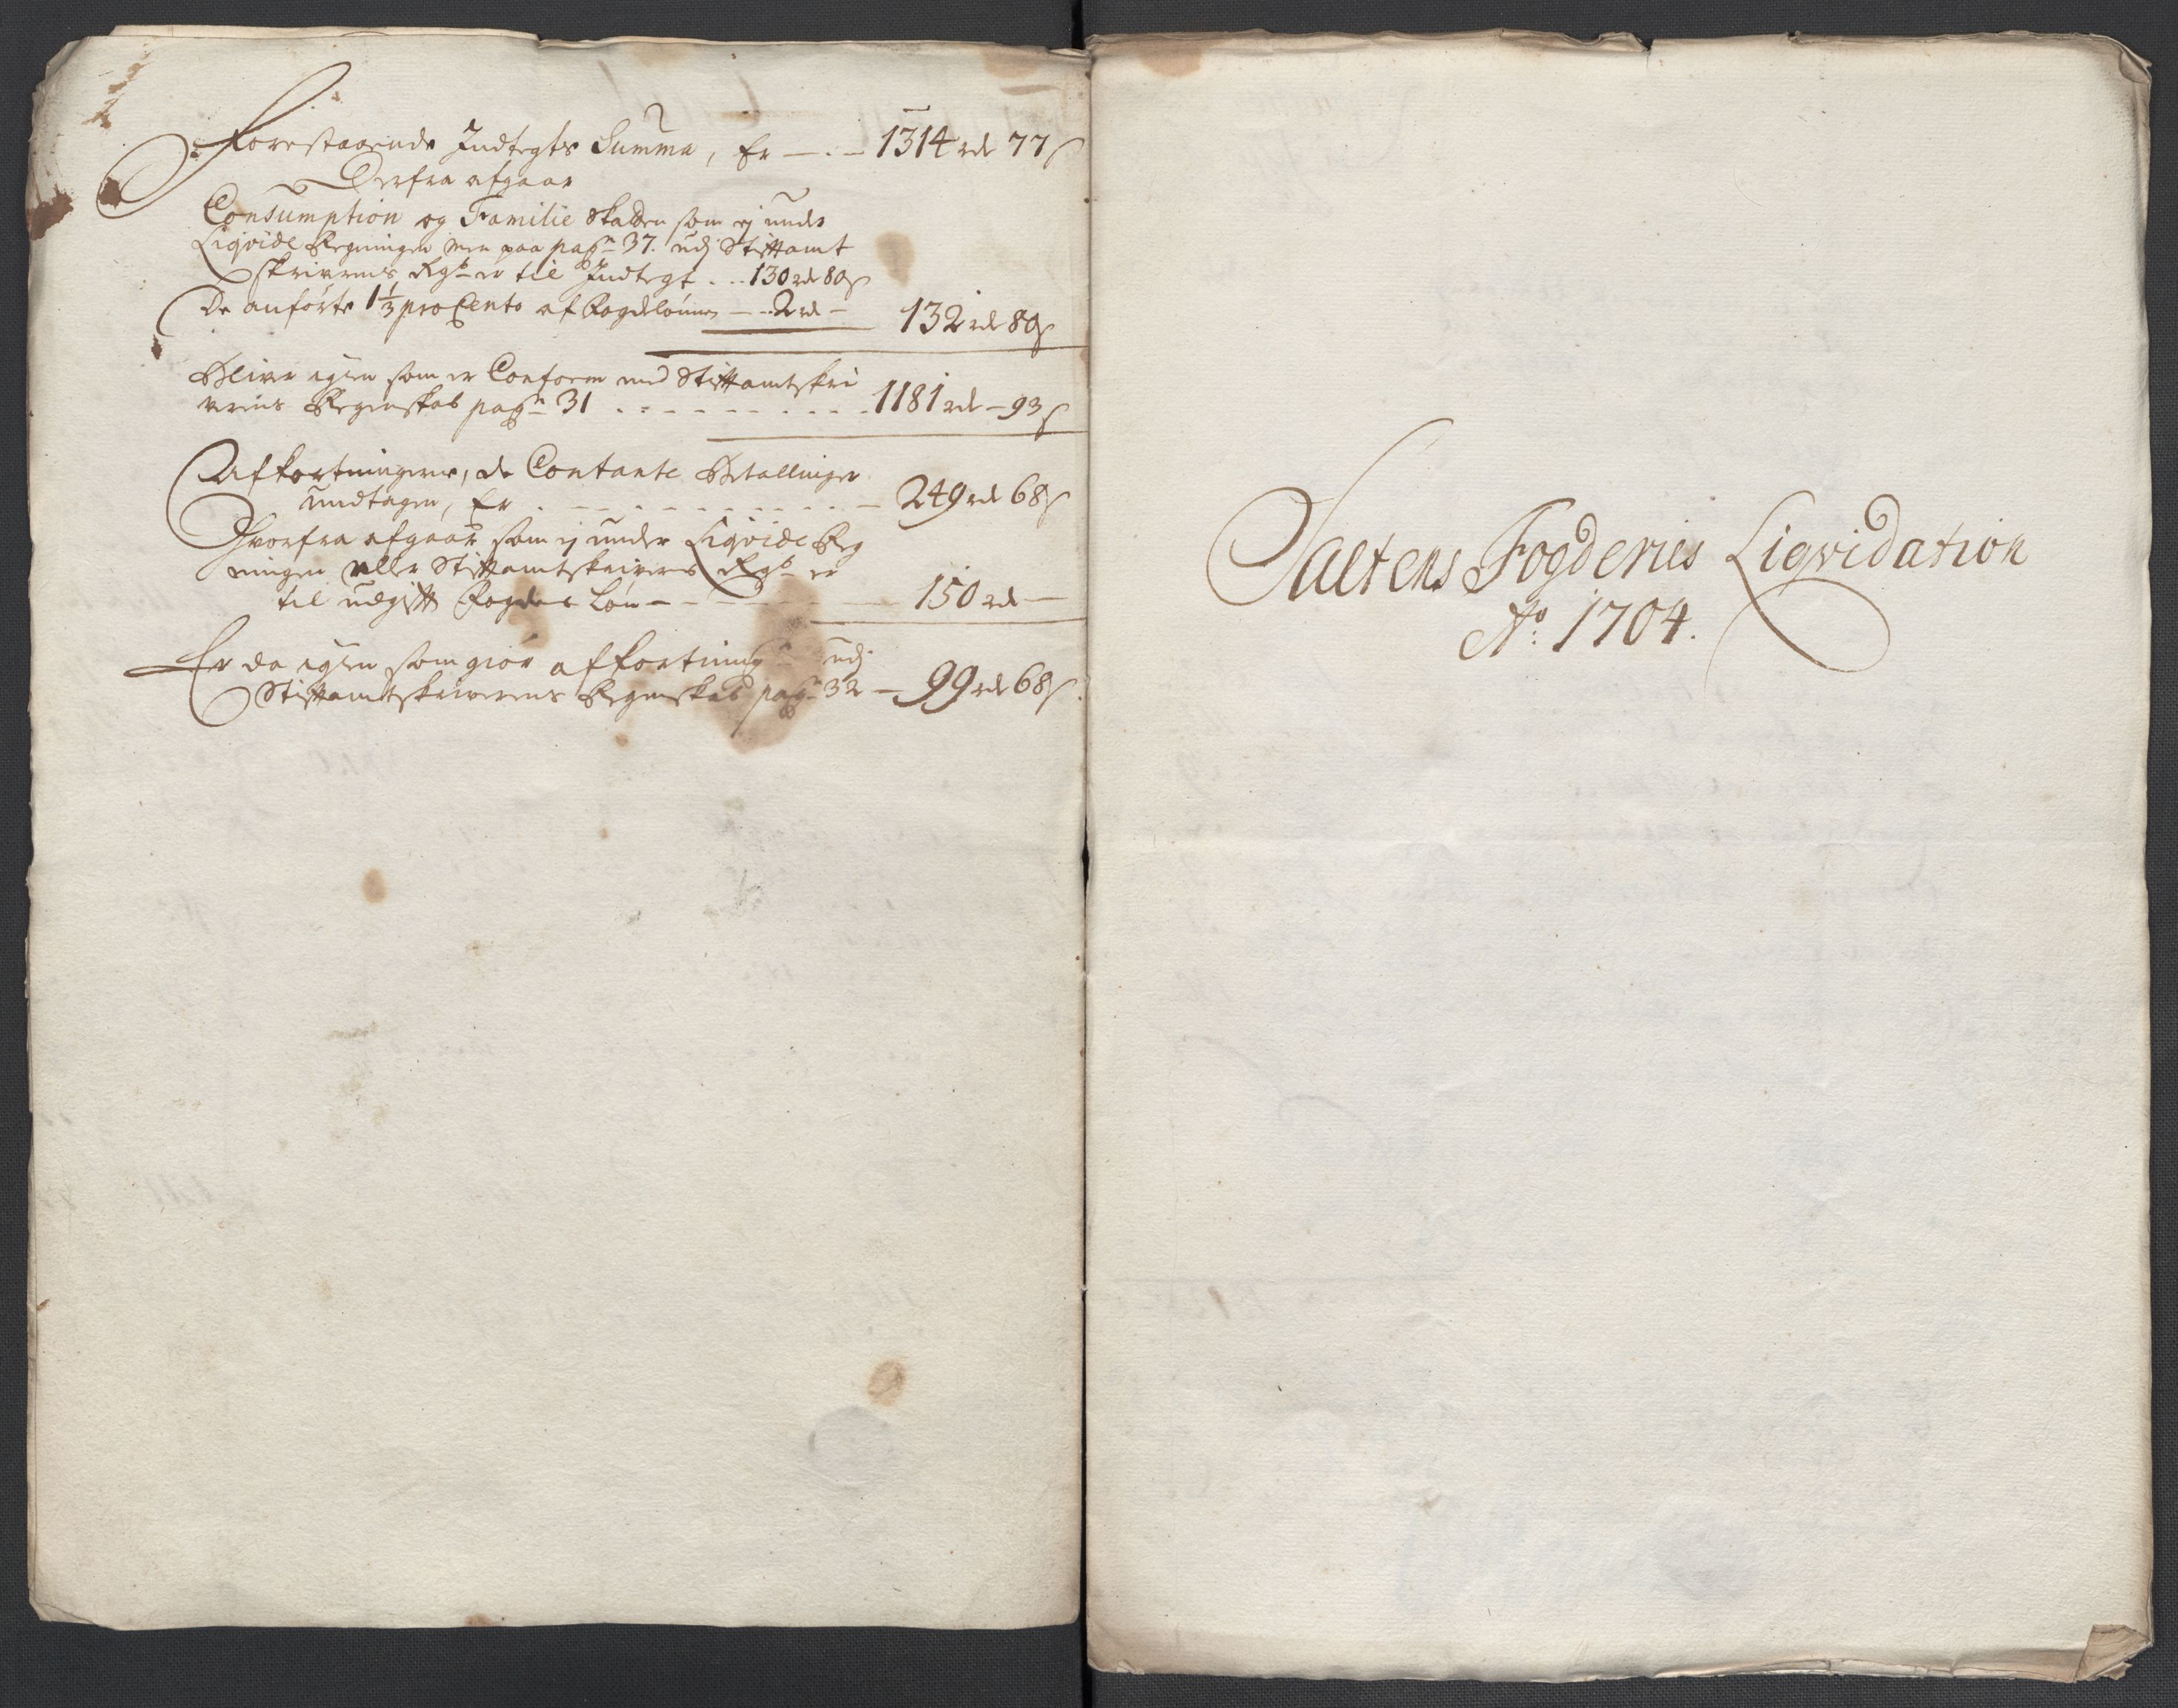 Forestaaende Indtegts Summa, Er — . — 1314 rd 77 s
Derfra afgaar
Consumption og Familie Skatten som ej under
Liqvide Regningen men paa pag: 37. udj Stiftamt
skrivrens Regsk: er til Indtegt . . . 130 rd 80 s
De anførte 1 1/3 pro Cento af Fogdelønnen — . 2 rd — 132 rd 80 s
Bliver igien som er Conform med Stiftamtskri
verens Regenskab pag: 31 . . . . . . . . . . 1181 rd — 93 s
Afkortningerne, de Contante Betallinger
undtagen, Er . . . . . . . . . . — 249 rd 68 s
Hvorfra afgaar som ej under Liqvide Reg
ningen eller Stiftamtskriverens Regsk: er
til udgift Fogdens Løn — — — — — 150 rd —
Er da igien som giør afkortning udj
Stiftamtskriverens Regenskab pag: 32 — 99 rd 68 s.
Saltens Fogderies Liqvidation
Ao: 1704.